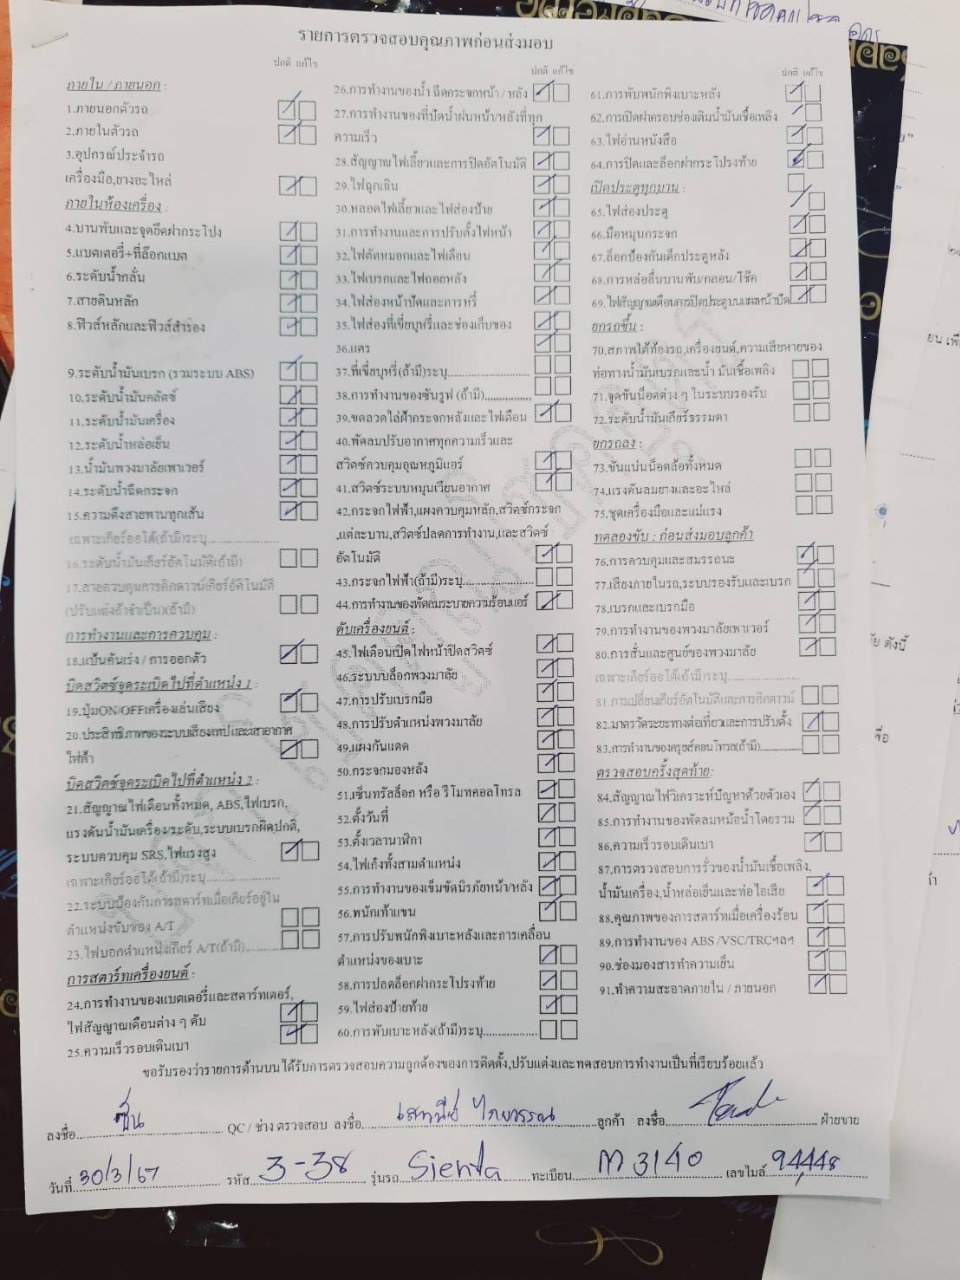 รายการตรวจสอบคุณภาพก่อนส่งมอบ
ปกติ แก้ไข
ภายใน / ภายนอก :
1.ภายนอกตัวรถ
2.ภายในตัวรถ
3.อุปกรณ์ประจำรถ
เครื่องมือ,ยางอะไหล่
ภายในห้องเครื่อง :
4.บานพับและจุดยึดฝากระโปง
5.แบตเตอรี่+ที่ล๊อกแบต
6.ระดับน้ำกลั่น
7.สายดินหลัก
8.ฟิวส์หลักและฟิวส์สำรอง
9.ระดับน้ำมันเบรก (รวมระบบ ABS)
10.ระดับน้ำมันคลัตช์
11.ระดับน้ำมันเครื่อง
12.ระดับน้ำหล่อเย็น
13.น้ำมันพวงมาลัยเพาเวอร์
14.ระดับน้ำฉีดกระจก
15.ความตึงสายพานทุกเส้น
เฉพาะเกียร์ออโต้(ถ้ามี)ระบุ
16.ระดับน้ำมันเกียร์อัตโนมัติ(ถ้ามี)
17.สายควบคุมการคิกดาวน์เกียร์อัตโนมัติ
(ปรับแต่งถ้าจำเป็น)(ถ้ามี)
การทำงานและการควบคุม :
18.แป้นคันเร่ง / การออกตัว
บิดสวิตช์จุดระเบิดไปที่ตำแหน่ง 1 :
19.ปุ่มON/OFFเครื่องเล่นเสียง
20.ประสิทธิภาพของระบบเสียงเทปและเสาอากาศ
ไฟฟ้า
บิดสวิตช์จุดระเบิดไปที่ตำแหน่ง 2 :
21.สัญญาณไฟเตือนทั้งหมด, ABS,ไฟเบรก,
แรงดันน้ำมันเครื่อง/ระดับ,ระบบเบรกผิดปกติ,
ระบบควบคุม SRS,ไฟแรงสูง
เฉพาะเกียร์ออโต้(ถ้ามี)ระบุ
22.ระบบป้องกันการสตาร์ทเมื่อเกียร์อยู่ใน
ตำแหน่งขับของ A/T
23.ไฟบอกตำแหน่งเกียร์ A/T(ถ้ามี)
การสตาร์ทเครื่องยนต์ :
24.การทำงานของแบตเตอรี่และสตาร์ทเตอร์,
ไฟสัญญาณเตือนต่าง ๆ ดับ
25.ความเร็วรอบเดินเบา
ปกติ แก้ไข
26.การทำงานของน้ำฉีดกระจกหน้า / หลัง
27.การทำงานของที่ปัดน้ำฝนหน้า/หลังที่ทุก
ความเร็ว
28.สัญญาณไฟเลี้ยวและการปิดอัตโนมัติ
29.ไฟฉุกเฉิน
30.หลอดไฟเลี้ยวและไฟส่องป้าย
31.การทำงานและการปรับตั้งไฟหน้า
32.ไฟตัดหมอกและไฟเตือน
33.ไฟเบรกและไฟถอยหลัง
34.ไฟส่องหน้าปัดและการหรี่
35.ไฟส่องที่เขี่ยบุหรี่และช่องเก็บของ
36.แตร
37.ที่เขี่ยบุหรี่(ถ้ามี)ระบุ
38.การทำงานของซันรูฟ (ถ้ามี)
39.ขดลวดไล่ฝ้ากระจกหลังและไฟเตือน
40.พัดลมปรับอากาศทุกความเร็วและ
สวิตช์ควบคุมอุณหภูมิแอร์
41.สวิตช์ระบบหมุนเวียนอากาศ
42.กระจกไฟฟ้า,แผงควบคุมหลัก,สวิตช์กระจก
แต่ละบาน,สวิตช์ปลดการทำงาน,และสวิตช์
อัตโนมัติ
43.กระจกไฟฟ้า(ถ้ามี)ระบุ
44.การทำงานของพัดลมระบายความร้อนแอร์
ดับเครื่องยนต์ :
45.ไฟเตือนเปิดไฟหน้าปิดสวิตซ์
46.ระบบบล็อกพวงมาลัย
47.การปรับเบรกมือ
48.การปรับตำแหน่งพวงมาลัย
49.แผงกันแดด
50.กระจกมองหลัง
51.เซ็นทรัลล็อก หรือ รีโมทคอลโทรล
52.ตั้งวันที่
53.ตั้งเวลานาฬิกา
54.ไฟเก๋งทั้งสามตำแหน่ง
55.การทำงานของเข็มขัดนิรภัยหน้า/หลัง
56.พนักเท้าแขน
57.การปรับพนักพิงเบาะหลังและการเคลื่อน
ตำแหน่งของเบาะ
58.การปลดล็อกฝากระโปรงท้าย
59.ไฟส่องป้ายท้าย
60.การพับเบาะหลัง(ถ้ามี)ระบุ
ปกติ แก้ไข
61.การพับพนักพิงเบาะหลัง
62.การเปิดฝาครอบช่องเติมน้ำมันเชื้อเพลิง
63.ไฟอ่านหนังสือ
64.การปิดและล็อกฝากระโปรงท้าย
เปิดประตูทุกบาน :
65.ไฟส่องประตู
66.มือหมุนกระจก
67.ล็อกป้องกันเด็กประตูหลัง
68.การหล่อลื่นบานพับ/กลอน/โช๊ค
69.ไฟสัญญาณเตือนการปิดประตูบนแผงหน้าปัด
ยกรถขึ้น :
70.สภาพใต้ท้องรถ,เครื่องยนต์,ความเสียหายของ
ท่อทางน้ำมันเบรกและน้ำมันเชื้อเพลิง
71.จุดขันน็อตต่าง ๆ ในระบบรองรับ
72.ระดับน้ำมันเกียร์ธรรมดา
ยกรถลง :
73.ขันแน่นน็อตล้อทั้งหมด
74.แรงดันลมยางและอะไหล่
75.ชุดเครื่องมือและแม่แรง
ทดลองขับ : ก่อนส่งมอบลูกค้า
76.การควบคุมและสมรรถนะ
77.เสียงภายในรถ,ระบบรองรับและเบรก
78.เบรกและเบรกมือ
79.การทำงานของพวงมาลัยเพาเวอร์
80.การสั่นและศูนย์ของพวงมาลัย
เฉพาะเกียร์ออโต้(ถ้ามี)ระบุ
81.การเปลี่ยนเกียร์อัตโนมัติและการคิกดาวน์
82.มาตรวัดระยะทางต่อเที่ยวและการปรับตั้ง
83.การทำงานของครุยส์คอนโทรล(ถ้ามี)
ตรวจสอบครั้งสุดท้าย:
84.สัญญาณไฟวิเคราะห์ปัญหาด้วยตัวเอง
85.การทำงานของพัดลมหม้อน้ำโดยรวม
86.ความเร็วรอบเดินเบา
87.การตรวจสอบการรั่วของน้ำมันเชื้อเพลิง,
น้ำมันเครื่อง,น้ำหล่อเย็นและท่อไอเสีย
88.คุณภาพของการสตาร์ทเมื่อเครื่องร้อน
89.การทำงานของ ABS /VSC/TRCฯลฯ
90.ช่องมองสารทำความเย็น
91.ทำความสะอาดภายใน / ภายนอก
ขอรับรองว่ารายการด้านบนได้รับการตรวจสอบความถูกต้องของการติดตั้ง,ปรับแต่งและทดสอบการทำงานเป็นที่เรียบร้อยแล้ว
ลงชื่อ ซัน QC / ช่างตรวจสอบ ลงชื่อ ลูกค้า ลงชื่อ ฝ่ายขาย
วันที่ 30/3/67 รหัส 3-38 รุ่นรถ Sienta ทะเบียน M 3140 เลขไมล์ 94,448